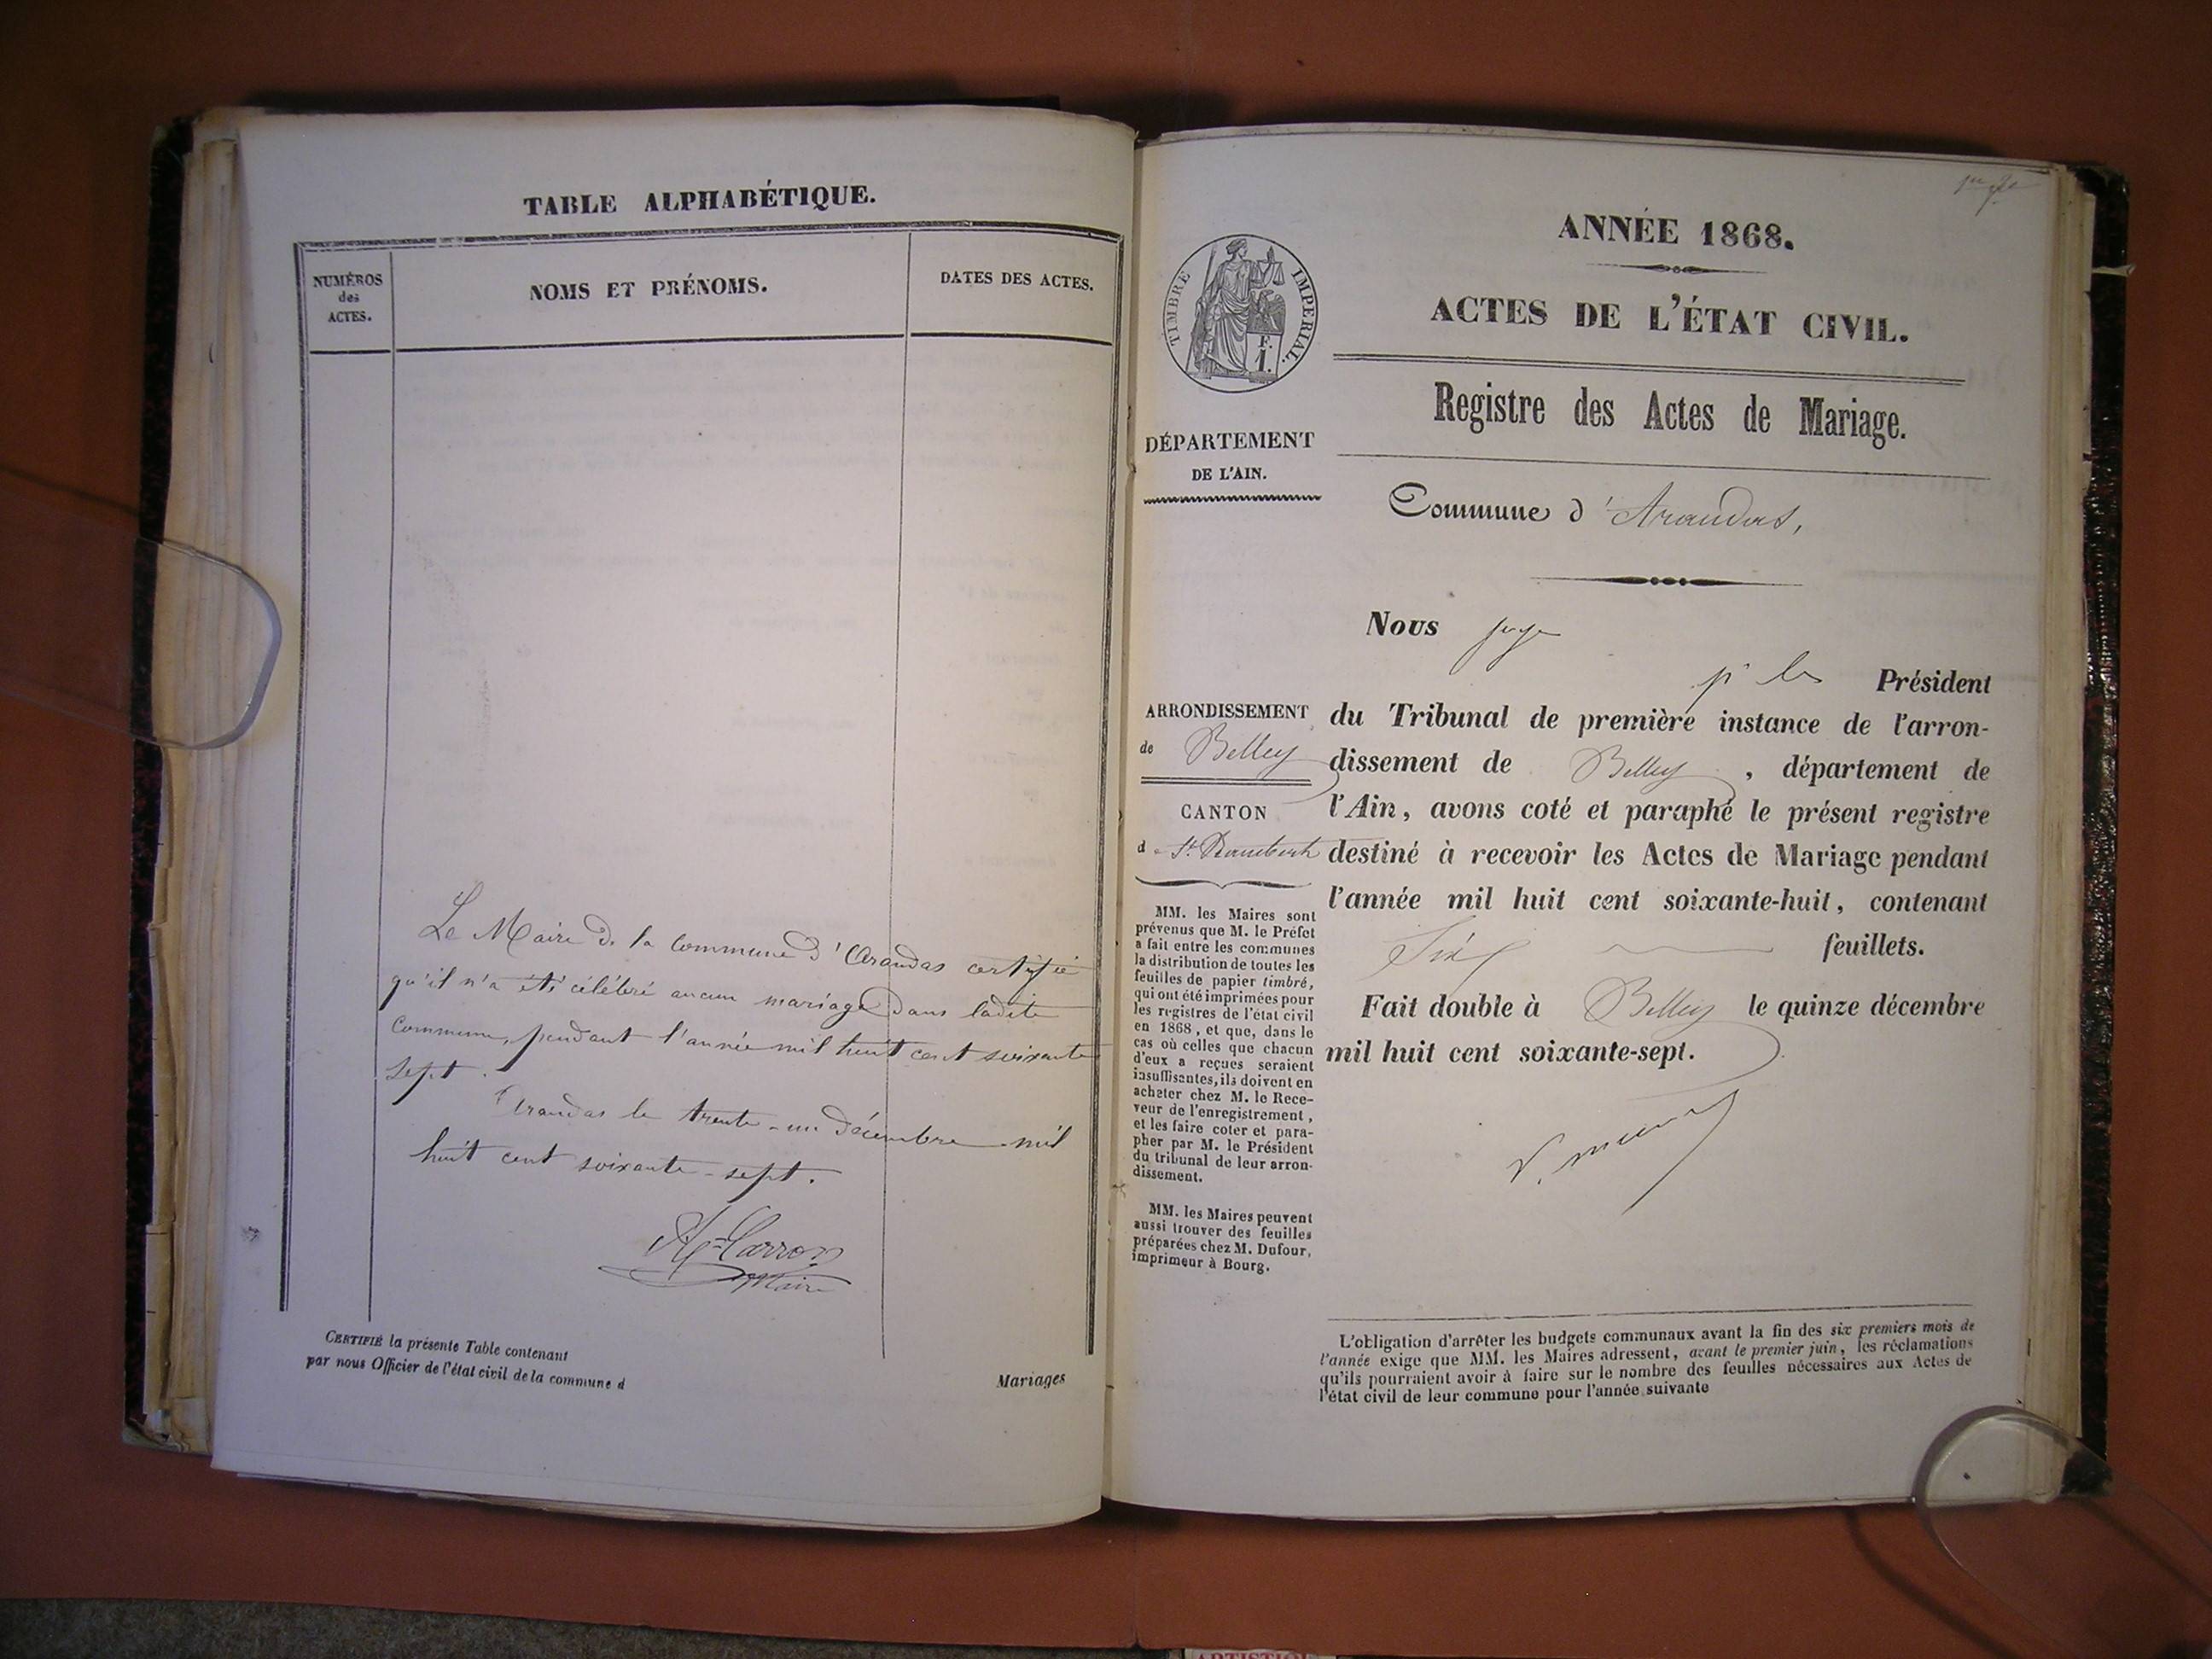 TABLE ALPHABÉTIQUE.
NUMÉROS
des
ACTES.
NOMS ET PRÉNOMS.
DATES DES ACTES.
Le Maire de la Commune d'Arandas certifie
qu'il n'a été célébré aucun mariage dans ladite
Commune, pendant l'année mil huit cent soixante
sept.
Arandas le trente-un décembre mil
huit cent soixante-sept.
Carron
Maire
CERTIFIÉ la présente Table contenant
Mariages
par nous Officier de l'état civil de la commune d
ANNÉE 1868.
ACTES DE L'ÉTAT CIVIL.
TIMBRE IMPERIAL.
F.
1.
Registre des Actes de Mariage.
DÉPARTEMENT
DE L'AIN.
Commune d'Arandas,
ARRONDISSEMENT
de Belley
CANTON
de St. Rambert
MM. les Maires sont
prévenus que M. le Préfet
a fait entre les communes
la distribution de toutes les
feuilles de papier timbré,
qui ont été imprimées pour
les registres de l'état civil
en 1868, et que, dans le
cas où celles que chacun
d'eux a reçues seraient
insuffisantes, ils doivent en
acheter chez M. le Rece-
veur de l'enregistrement,
et les faire coter et para-
pher par M. le Président
du tribunal de leur arron-
dissement.
MM. les Maires peuvent
aussi trouver des feuilles
préparées chez M. Dufour,
imprimeur à Bourg.
Nous juge
Président
du Tribunal de première instance de l'arron-
dissement de Belley, département de
l'Ain, avons coté et paraphé le présent registre
destiné à recevoir les Actes de Mariage pendant
l'année mil huit cent soixante-huit, contenant
Six feuillets.
Fait double à Belley le quinze décembre
mil huit cent soixante-sept.
L'obligation d'arrêter les budgets communaux avant la fin des six premiers mois de
l'année exige que MM. les Maires adressent, avant le premier juin, les réclamations
qu'ils pourraient avoir à faire sur le nombre des feuilles nécessaires aux Actes de
l'état civil de leur commune pour l'année suivante